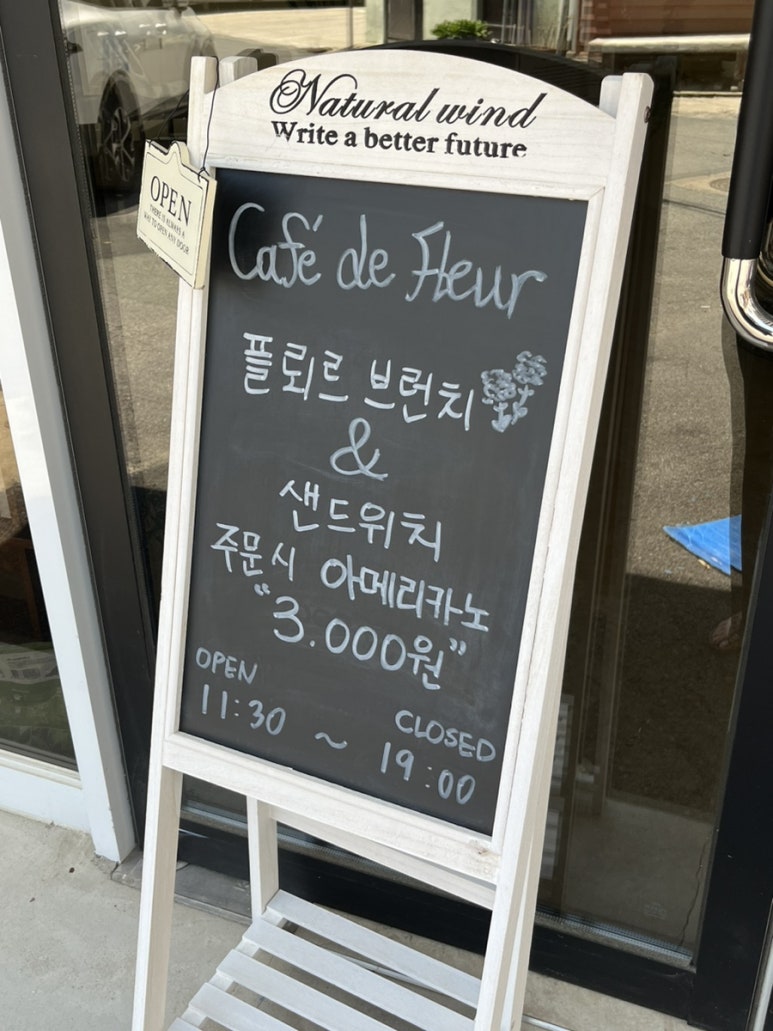 Natural wind
Write a better future
OPEN
THERE IS ALWAYS A
WAY TO OPEN ANY DOOR
Café de Fleur
플뢰르 브런치
&
샌드위치
주문시 아메리카노
"3.000원"
OPEN
11:30 ~
CLOSED
19:00